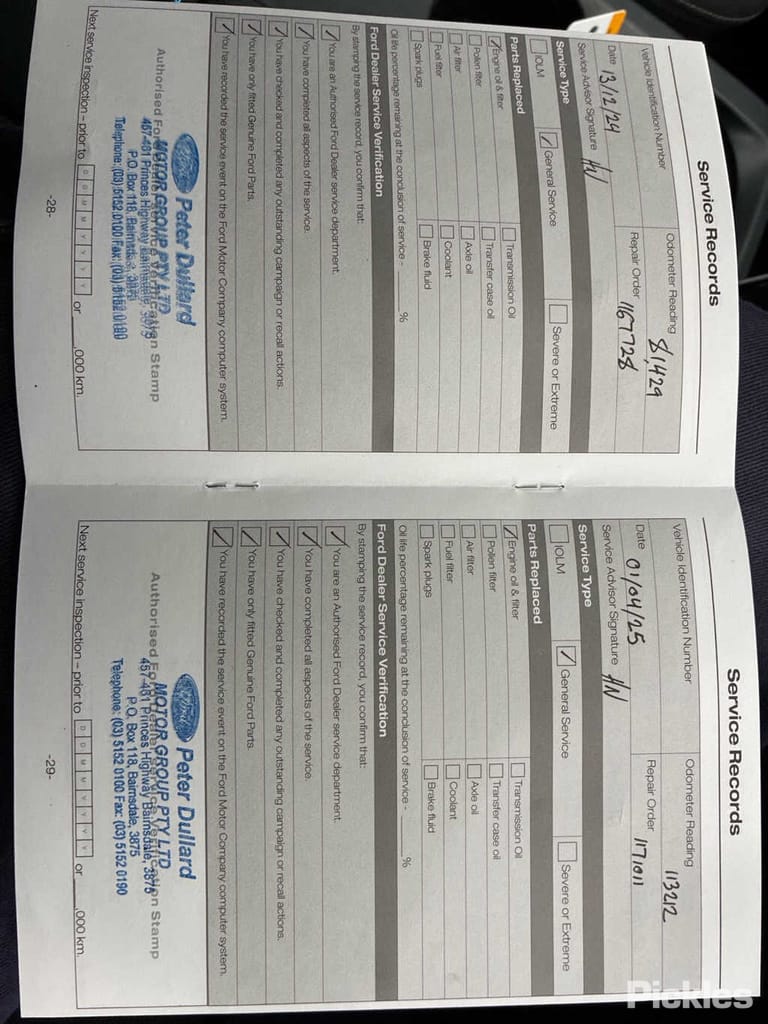 Service Records
Vehicle Identification Number
Odometer Reading 81,429
Date 13/12/24
Repair Order 1167728
Service Advisor Signature HN
Service Type
IOLM
✓ General Service
Severe or Extreme
Parts Replaced
✓ Engine oil & filter
Transmission Oil
Pollen filter
Transfer case oil
Air filter
Axle oil
Fuel filter
Coolant
Spark plugs
Brake fluid
Oil life percentage remaining at the conclusion of service - ____ %
Ford Dealer Service Verification
By stamping the service record, you confirm that:
✓ You are an Authorised Ford Dealer service department.
✓ You have completed all aspects of the service.
✓ You have checked and completed any outstanding campaign or recall actions.
✓ You have only fitted Genuine Ford Parts.
✓ You have recorded the service event on the Ford Motor Company computer system.
Ford Peter Dullard
MOTOR GROUP PTY LTD
Authorised Ford Dealer Service Verification Stamp
457-481 Princes Highway Bairnsdale, 3875
P.O. Box 118, Bairnsdale, 3875
Telephone: (03) 5152 0100 Fax: (03) 5152 0190
Next service inspection – prior to D D M M Y Y Y Y or ____ ,000 km.
-28-
Service Records
Vehicle Identification Number
Odometer Reading 113212
Date 01/04/25
Repair Order 1171011
Service Advisor Signature HN
Service Type
IOLM
✓ General Service
Severe or Extreme
Parts Replaced
✓ Engine oil & filter
Transmission Oil
Pollen filter
Transfer case oil
Air filter
Axle oil
Fuel filter
Coolant
Spark plugs
Brake fluid
Oil life percentage remaining at the conclusion of service - ____ %
Ford Dealer Service Verification
By stamping the service record, you confirm that:
✓ You are an Authorised Ford Dealer service department.
✓ You have completed all aspects of the service.
✓ You have checked and completed any outstanding campaign or recall actions.
✓ You have only fitted Genuine Ford Parts.
✓ You have recorded the service event on the Ford Motor Company computer system.
Ford Peter Dullard
MOTOR GROUP PTY LTD
Authorised Ford Dealer Service Verification Stamp
457-481 Princes Highway Bairnsdale, 3875
P.O. Box 118, Bairnsdale, 3875
Telephone: (03) 5152 0100 Fax: (03) 5152 0190
Next service inspection – prior to D D M M Y Y Y Y or ____ ,000 km.
-29-
Pickles